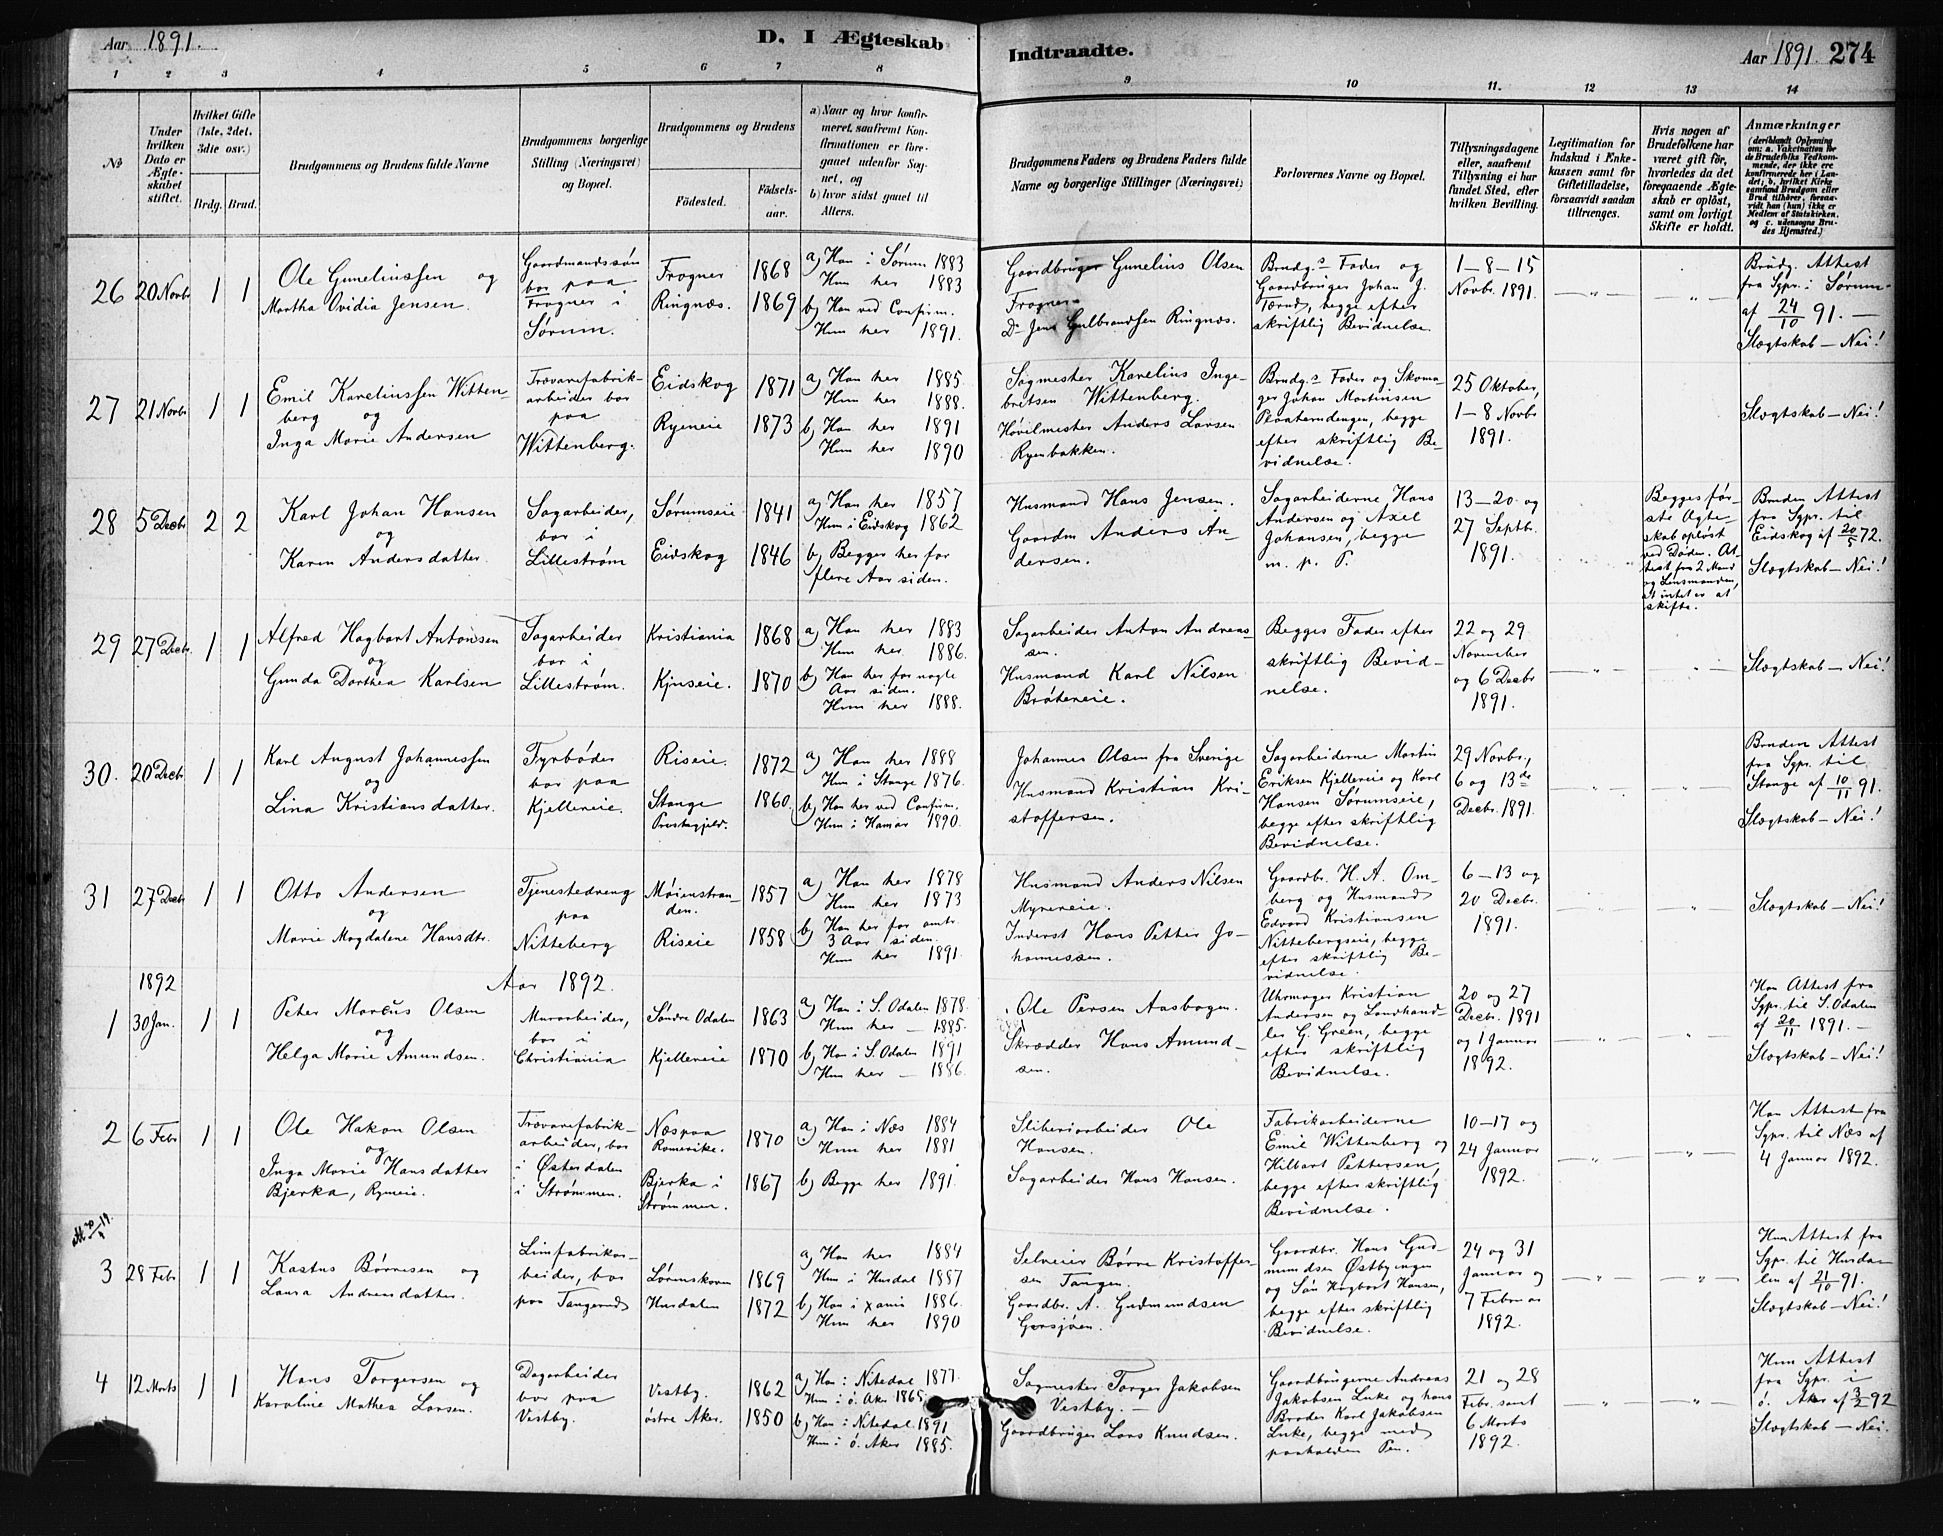 Aar 1891.
D. I Ægteskab
Indtraadte.
Aar 1891. 274
1 2 3 4 5 6 7 8 9 10 11. 12 13 14
No
Under hvilken Dato er Ægteskabet stiftet.
Hvilket Gifte (1ste, 2det, 3die osv.)
Brdg. Brud.
Brudgommens og Brudens fulde Navne
Brudgommens borgerlige Stilling (Næringsvei) og Bopæl.
Brudgommens og Brudens
Födested.
Födsels-aar.
a) Naar og hvor konfirmeret, saafremt Konfirmationen er foregaaet udenfor Sognet, og
b) hvor sidst gaaet til Alters.
Brudgommens Faders og Brudens Faders fulde Navne og borgerlige Stillinger (Næringsvei)
Forlovernes Navne og Bopæl.
Tillysningsdagene eller, saafremt Tillysning ei har fundet Sted, efter hvilken Bevilling.
Legitimation for Indskud i Enkekassen samt for Giftetilladelse, forsaavidt saadan tiltrænges.
Hvis nogen af Brudefolkene har været gift för, hvorledes da det foregaaende Ægteskab er oplöst, samt om lovligt Skifte er holdt.
Anmærkninger
(deriblandt Oplysning om: a. Vakcination for de Brudefolks Vedkommende, der ikke ere konfirmerede her i Landet; b. hvilket Kirkesamfund Brudgom eller Brud tilhörer, forsaavidt han (hun) ikke er Medlem af Statskirken, og c. udensogns Brudes Hjemsted.)
26 20 Novbr 1 1
Ole Guneliussen og
Martha Ovidia Jensen.
Gaardmandssøn
bor paa
Frogner i
Sørum.
Frogner 1868
Ringnæs. 1869
a) Han i Sørum 1883
Hun her 1883
b) Han ved Confirm.
Hun her 1891.
Gaardbruger Gunelius Olsen
Frogner
Do Jens Gulbrandsen Ringnæs.
Brudg.s Fader og
Gaardbruger Johan J.
Tærud, begge efter
skriftlig Bevidnelse.
1-8-15
Novbr. 1891.
Brudg. Attest
fra Sgpr. i Sørum
af 24/10 91. —
Slægtskab — Nei!
27 21 Novbr 1 1
Emil Kareliussen Witten-
berg og
Inga Marie Andersen
Trævarefabrik-
arbeider bor
paa
Wittenberg.
Eidskog 1871
Ryeneie 1873
a) Han her 1885.
Hun her 1888.
b) Han her 1891
Hun her 1890
Sagmester Karelius Inge-
bretsen Wittenberg.
Høvilmester Anders Larsen
Ryenbakken.
Brudg.s Fader og Skoma-
ger Johan Martinsen
begge
efter skriftlig Be-
vidnelse.
25 Oktober,
1-8 Novbr
1891.
Slægtskab — Nei!
28 5 Decbr 2 2
Karl Johan Hansen
og
Karen Andersdatter.
Sagarbeider,
bor i
Lillestrøm
Sørumseie 1841
Eidskog 1846
a) Han her 1857
Hun i Eidskog 1862
b) Begge her for
flere Aar siden.
Husmand Hans Jensen.
Gaardm Anders An-
dersen.
Sagarbeiderne Hans
Andersen og Axel
Johansen, begge
m. p. P.
13-20 og
27 Septb.
1891.
Begges før-
ste Ægte-
skab opløst
ved Døden. At-
test fra 2 Mænd
og Lensmanden,
at intet er at
skifte.
Bruden Attest
fra Sgpr. til
Eidskog af 20/5 72.
Slægtskab — Nei!
29 27 Decbr. 1 1
Alfred Hagbart Antonsen
og
Gunda Dorthea Karlsen
Sagarbeider
bor i
Lillestrøm.
Kristiania 1868
Kjuseie. 1870
a) Han her 1883
Hun her 1886.
b) Han her for nogle
Aar siden.
Hun her 1888.
Sagarbeider Anton Andreas-
sen.
Husmand Karl Nilsen
Bråteneie.
Begges Fader efter
skriftlig Bevid-
nelse.
22 og 29
November
og 6 Decbr
1891.
Slægtskab — Nei!
30. 20 Decbr 1 1
Karl August Johannessen
og
Lina Kristiansdatter.
Fyrbøder
bor paa
Kjellereie.
Riseie. 1872
Stange
Prestegjeld. 1860
a) Han her 1888
Hun i Stange 1876.
b) Han her ved Confirm.
Hun i Hamar 1890.
Johannes Olsen fra Sverige
Husmand Kristian Kri-
stoffersen.
Sagarbeiderne Martin
Eriksen Kjellereie og Karl
Hansen Sørumseie,
begge efter skriftlig
Bevidnelse.
29 Novbr.,
6 og 13de
Decbr. 1891.
Bruden Attest
fra Sgpr. til
Stange af 10/11 91.
Slægtskab — Nei!
31 27 Decbr 1 1
Otto Andersen
og
Marie Magdalene Hansdtr.
Tjenestedreng
paa
Nitteberg
Møienstran-
den. 1857
Riseie 1858
a) Han her 1878
Hun her 1873
b) Han her for omtr.
3 Aar siden.
Hun her 1891.
Husmand Anders Nilsen
Myrereie.
Inderst Hans Petter Jo-
hannessen.
Gaardbr. H. A. Om-
berg og Husmand
Edvard Kristiansen
Nittebergseie, begge
efter skriftlig Be-
vidnelse.
6-13 og
20 Decbr.
1891.
Slægtskab — Nei!
1892
Aar 1892.
1 30 Jan. 1 1
Peter Marcus Olsen
og
Helga Marie Amundsen.
Murarbeider,
bor i
Christiania
Søndre Odalen 1863
Kjellereie 1870
a) Han i S. Odalen 1878.
Hun her — 1885.
b) Han i S. Odalen 1891
Hun her — 1886.
Ole Persen Aasbogen.
Skrædder Hans Amund-
sen.
Uhrmager Kristian
Andersen og Landhand-
ler G. Green, begge
efter skriftlig
Bevidnelse.
20 og 27
Decbr. 1891
og 1 Januar
1892.
Han Attest fra
Sgpr. til S. Odalen
af 20/11 1891. —
Slægtskab — Nei!
2 6 Febr 1 1
Ole Hakon Olsen
og
Inga Marie Hansdatter
Bjerka, Ryneie.
Trævarefabrik-
arbeider, bor
i Østerdalen
i Strømmen.
Næs paa
Romerike. 1870
Bjerka i
Strømmen. 1867
a) Han i Næs 1884
Hun her 1881
b) Begge her 1891.
Sliberiarbeider Ole
Hansen.
Sagarbeider Hans Hansen.
Fabrikarbeiderne
Emil Wittenberg og
Hilbart Pettersen,
begge efter skriftlig
Bevidnelse.
10-17 og
24 Januar
1892.
Han Attest fra
Sgpr. til Næs af
4 Januar 1892.
3 28 Febr 1 1
Kastus Børresen og
Laura Andreasdatter.
Limfabrikar-
beider, bor
paa Tangerud
Lørenskoven 1869
Hurdalen 1872
a) Han her 1884
Hun i Hurdal 1887
b) Han i Xania 1886.
Hun her 1890
Selveier Børre Kristoffer-
sen Tangen.
Gaardbr. A. Gudmundsen
Garsjøen.
Gaardbr. Hans Gud-
mundsen Østbyengen
og Søn Hagbart Hansen,
begge efter skriftlig
Bevidnelse.
24 og 31
Januar og
7 Februar
1892.
Hun Attest fra
Sgpr. til Hurda-
len af 21/10 91.
Slægtskab — Nei!
4 12 Marts 1 1
Hans Torgersen og
Karoline Mathea Larsen.
Dagarbeider
bor paa
Vestby.
Vestby. 1862
østre Aker. 1850
a) Han i Nitedal 1877.
Hun i ø. Aker 1865.
b) Han i Nitedal 1891
Hun i ö. Aker 1885.
Sagmester Torger Jakobsen
Vestby. —
Gaardbruger Lars Knudsen.
Gaardbrugerne Andreas
Jakobsen Luke og hans
Broder Karl Jakobsen
Luke, begge med
paaholden Pen.
21 og 28
Febr. samt
6 Marts
1892.
Hun Attest
fra Sgpr. i
ö. Aker af 3/2 92
Slægtskab — Nei.